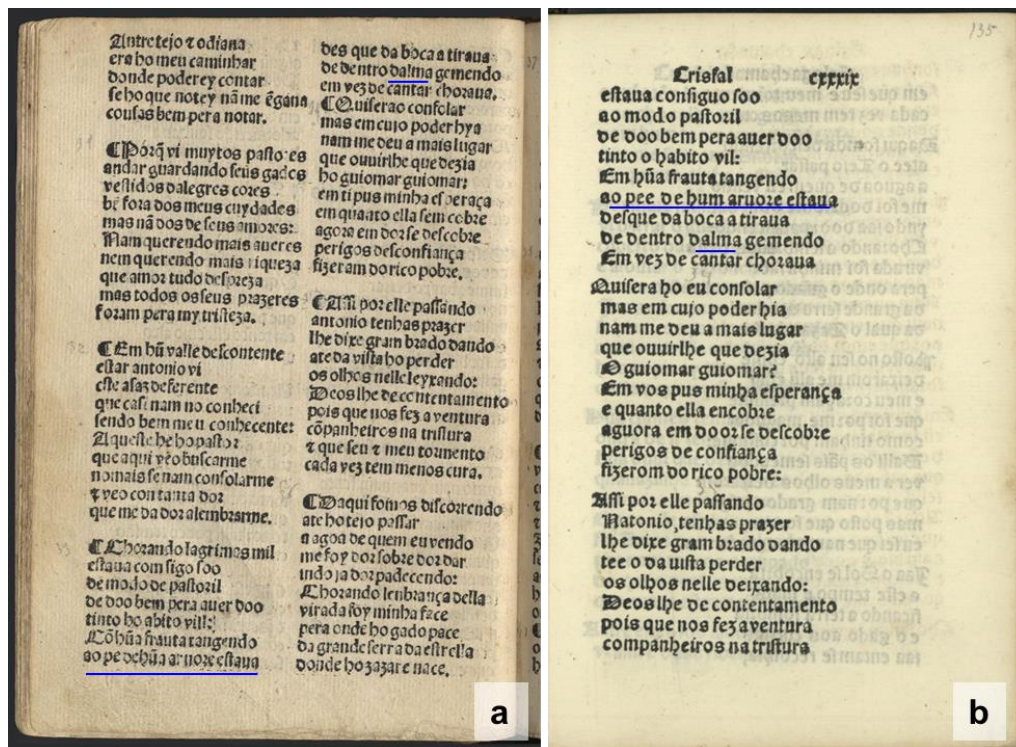 Antre tejo ⁊ odiana
era ho meu caminhar
donde poderey contar
se ho que notey nã me ẽgana
cousas bem pera notar.
¶ Porq̃ vi muytos pastores
andar guardando seus gados
vestidos dalegres cores
bẽ fora dos meus cuydados
mas nã dos de seus amores:
Nam querendo mais aueres
nem querendo mais riqueza
que amor tudo despreza
mas todos os seus prazeres
foram pera my tristeza.
¶ Em hũ valle descontente
estar antonio vi
este assaz deferente
que casi nam no conheci
sendo bem meu conhecente:
Aqueste he ho pastor
que aqui vẽo buscarme
no mais se nam consolarme
⁊ veo con tanta dor
que me da dor alembrarme.
¶ Chorando lagrimas mil
estaua com sigo soo
de modo de pastoril
de doo bem pera auer doo
tinto ho abito vill:
Cõ hũa frauta tangendo
ao pe de hũa aruore estaua
des que da boca a tiraua
de dentro dalma gemendo
em vez de cantar choraua.
¶ Quiserao consolar
mas em cujo poder hya
nam me deu a mais lugar
que ouuirlhe que dezia
ho guiomar guiomar:
em ti pus minha esperaça
em quanto ella sem cobre
agora em dor se descobre
perigos desconfiança
fizeram do rico pobre.
¶ Assi por elle passando
antonio tenhas prazer
lhe dixe gram brado dando
ate da vista ho perder
os olhos nelle leyxando:
Deos lhe de contentamento
pois que nos fez a ventura
cõpanheiros na tristura
⁊ que seu ⁊ meu tormento
cada vez tem menos cura.
¶ Daqui fomos discorrendo
ate ho tejo passar
a agoa de quem eu vendo
me foy dor sobre dor dar
indo ja dor padecendo:
Chorando lenbrança della
virada foy minha face
pera onde ho gado pace
da grande serra da estrella
donde ho zazare nace.
a
135
Crisfal cxxxix
estaua consiguo soo
ao modo pastoril
de doo bem pera auer doo
tinto o habito vil:
Em hũa frauta tangendo
ao pee de hum aruore estaua
desque da boca a tiraua
de dentro dalma gemendo
Em vez de cantar choraua
Quisera ho eu consolar
mas em cujo poder hia
nam me deu a mais lugar
que ouuirlhe que dezia
O guiomar guiomar?
Em vos pus minha esperança
e quanto ella encobre
aguora em door se descobre
perigos de confiança
fizerom do rico pobre:
Assi por elle passando
Natonio, tenhas prazer
lhe dixe gram brado dando
tee o da uista perder
os olhos nelle deixando:
Deos lhe de contentamento
pois que nos fez a ventura
companheiros na tristura
b